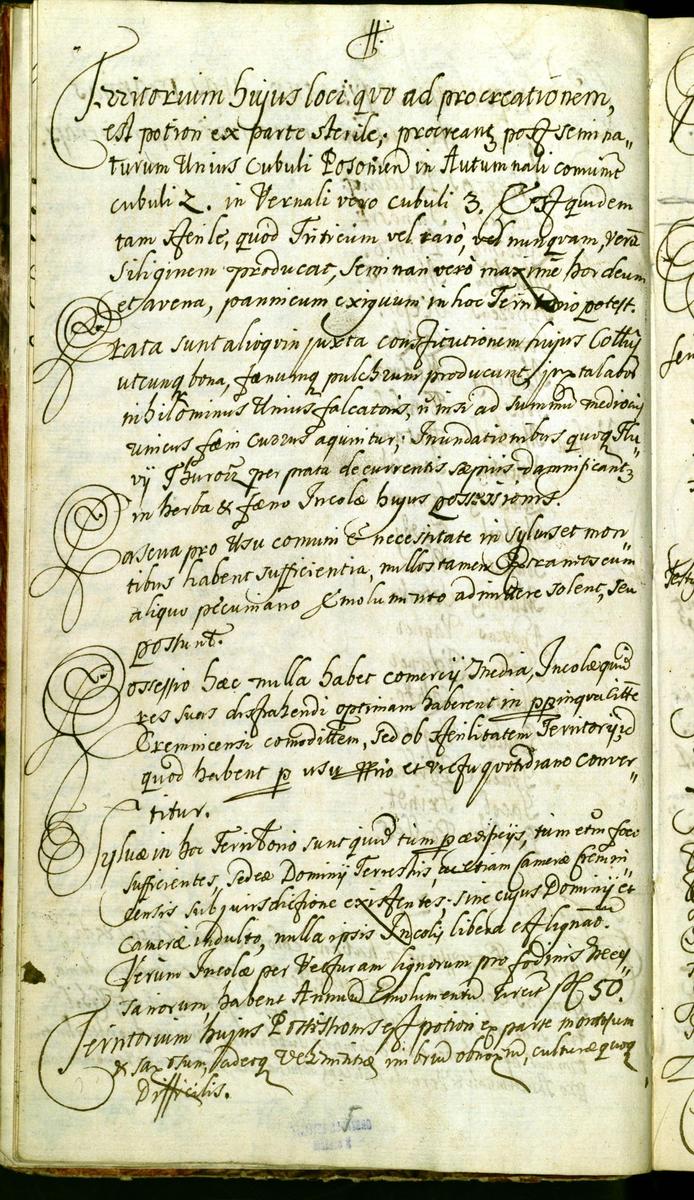 Territorium hujus loci quo ad procreationem,
est potiori ex parte sterile; procreant post semina„
turam Unius Cubuli Posonien in Autumnali comunit
cubuli 2. in Vernali vero cubuli 3. Est quidem
tam sterile, quod Triticum vel raro, vel nunquam, Verū
Siliginem producat, seminari vero maxime hordeum
et avena, pannicum exiguum in hoc Territorio potest.
Prata sunt alioquin juxta constitutionem hujus Cottūs
utcunq bona, fænumq pulchrum producunt, juxta labor
nihilominus Unius falcatoris, ad summū mediocris
unicus fæni currus aquiritur; Inundationibus quoq Flu„
vij Thurocz per prata decurrentis sæpius damnificant
in herba & fæno Incolæ hujus possessionis.
Pascua pro Usu comuni & necessitate in sylvis et mon
tibus habent sufficientia, nullos tamen cum
aliquo pecuniario Emolumento admittere solent, seu
possunt.
Possessio hæc nulla habet comercij Media, Incolæ quid
res suas distrahendi optimam haberent in ppinqua Citte
Cremnicensi comodittem, sed ob sterilitatem Territorij, id
quod habent p usu pprio et victu quotidiano conver„
titur.
Sylvæ in hoc Territorio sunt quid tum p ædificijs, tum etm foco
sufficientes, sed eæ Dominij Terrestris, ac etiam Cameræ Cremni
censis sub jurisdictione existentes. sine cujus Dominij et
Cameræ indulto, nulla ipsis Incolis libera est lignaō.
Verum Incolæ per Vecturam lignorum pro fodinis necess„
sariorum, habent Annuū Emolumentū circit fl 50.
Territorium hujus Possessionis est potiori ex parte montosum
& saxosum, adeoq Vehementiæ imbriū obnoxiū, culturæ quoq
Difficilis.
5